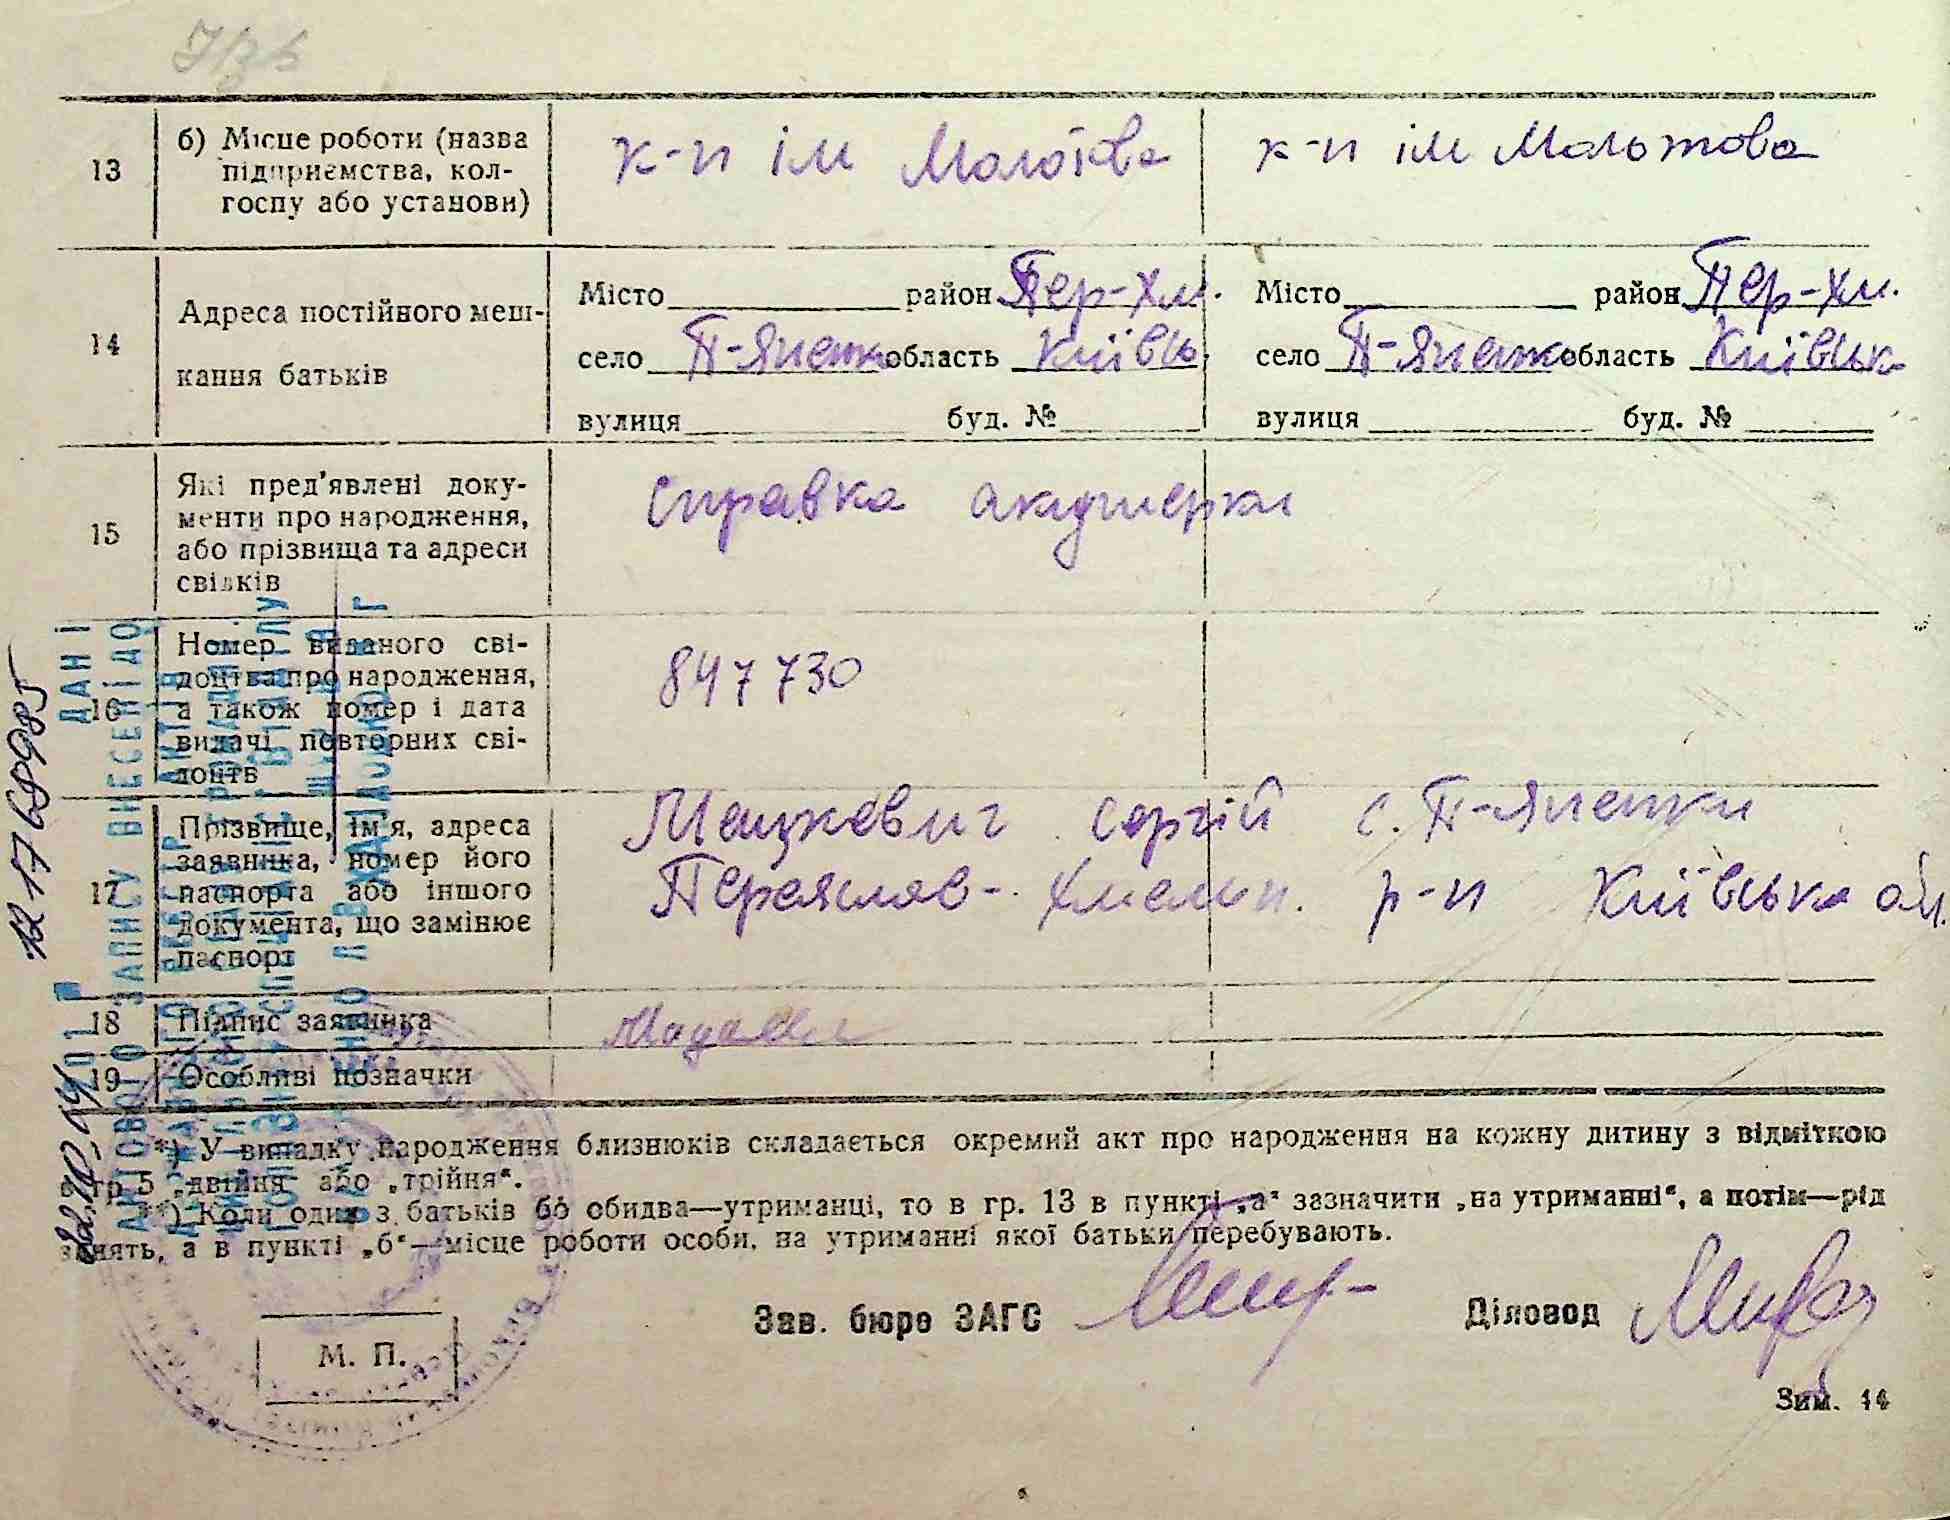 13
б) Місце роботи (назва
підприємства, кол-
госпу або установи)
к-п ім Молотова
к-п ім Молотова
14
Адреса постійного меш-
кання батьків
Місто район Пер-Хм.
село П-Яненки область Київсь.
вулиця буд. №
Місто район Пер-Хм.
село П-Яненки область Київськ
вулиця буд. №
15
Які пред'явлені доку-
менти про народження,
або прізвища та адреси
свідків
справка акушерки
16
Номер виданого сві-
доцтва про народження,
а також номер і дата
видачі повторних сві-
доцтв
847730
17
Прізвище, ім'я, адреса
заявника, номер його
паспорта або іншого
документа, що замінює
паспорт
Мацкевич Сергій с. П-Яненки
Переяслав-Хмельн. р-н Київська обл.
18
Підпис заявника
19
Особливі позначки
*) У випадку народження близнюків складається окремий акт про народження на кожну дитину з відміткою
в гр. 5 „двійня" або „трійня".
**) Коли один з батьків бо обидва—утриманці, то в гр. 13 в пункті „а" зазначити „на утриманні", а потім—рід
занять, а в пункті „б"—місце роботи особи, на утриманні якої батьки перебувають.
Зав. бюро ЗАГС
Діловод
М. П.
Зим. 44
ДАНІ
АКТОВОГО ЗАПИСУ ВНЕСЕНІ ДО